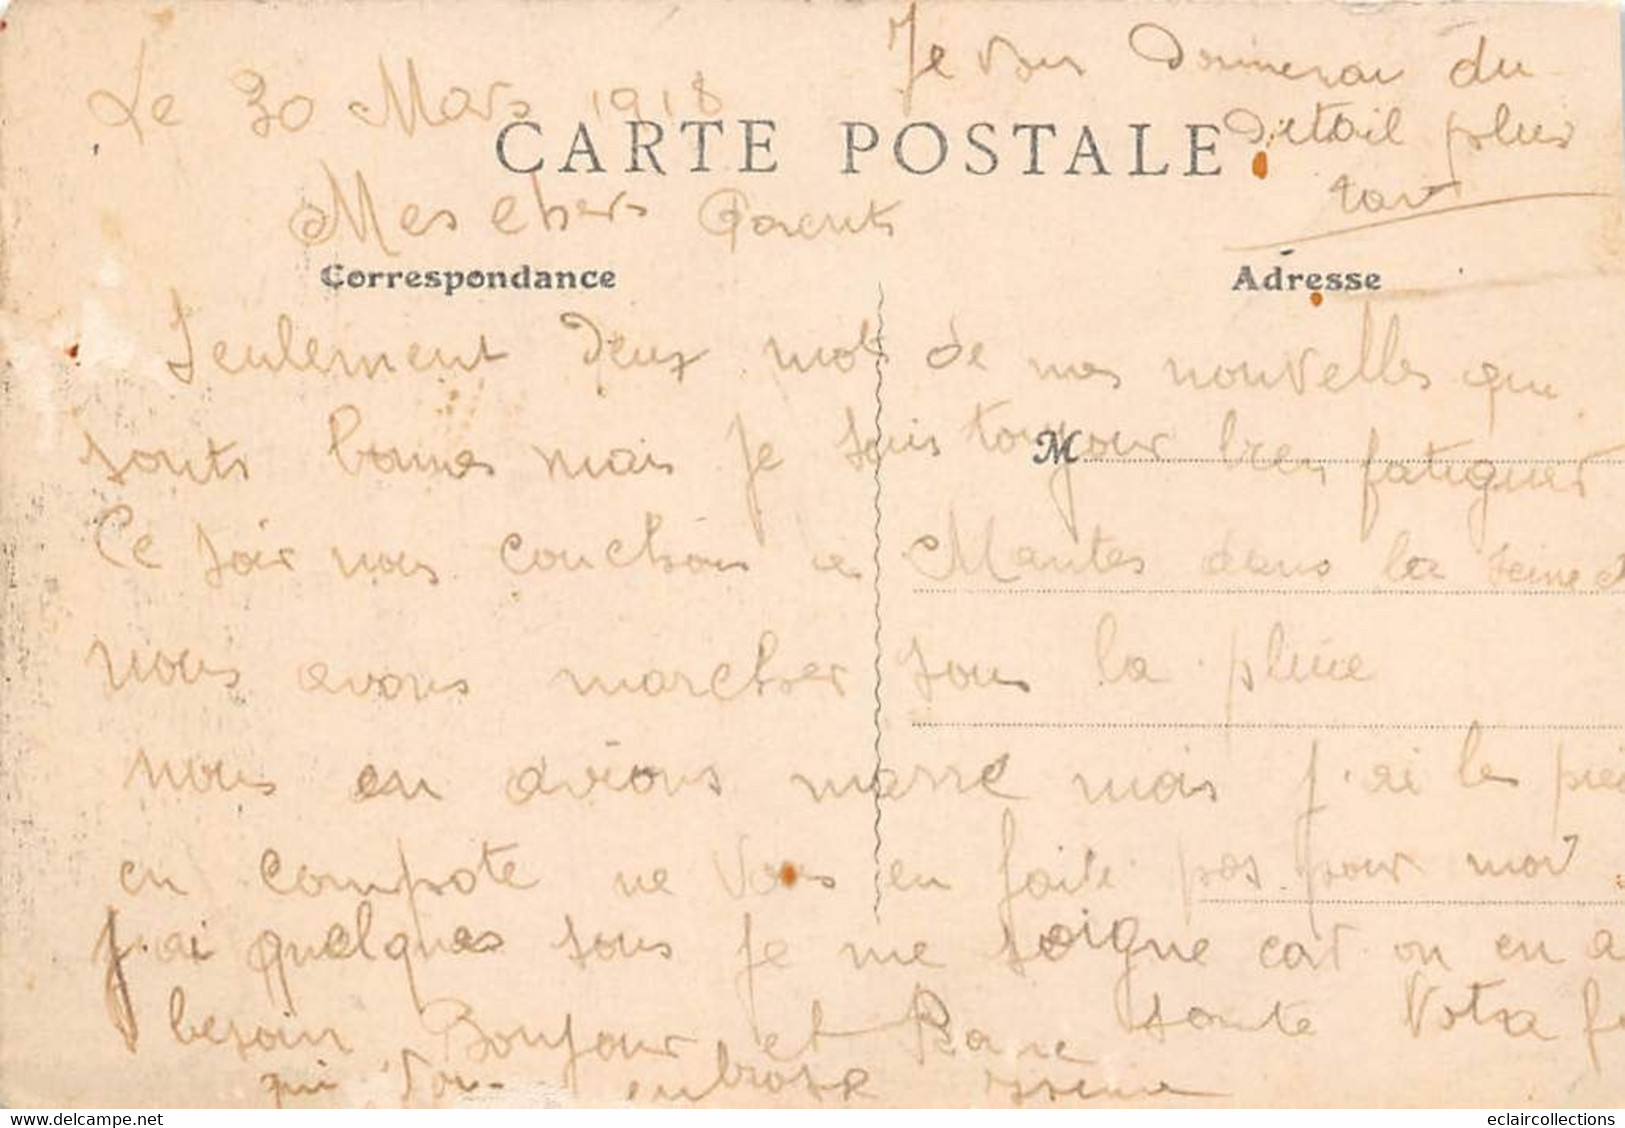 Le 30 Mars 1918
Je vous Donnerai du
Détail plus
tart
CARTE POSTALE
Mes chers Parents
Correspondance
Adresse
Seulement deux mots de mes nouvelles que
sonts bonnes mais je suis toujour bien fatiguer
M
Ce soir nous couchons a Mantes dans la seine et
nous avons marcher sous la pluie
nous en avions marre mais j'ai les pied
en compote ne vous en faite pas pour moi
j'ai quelques sous je me soigne car on en a
besoin Bonjour et Bonne sante Votre f
qui vou embrasse
eclaircollections